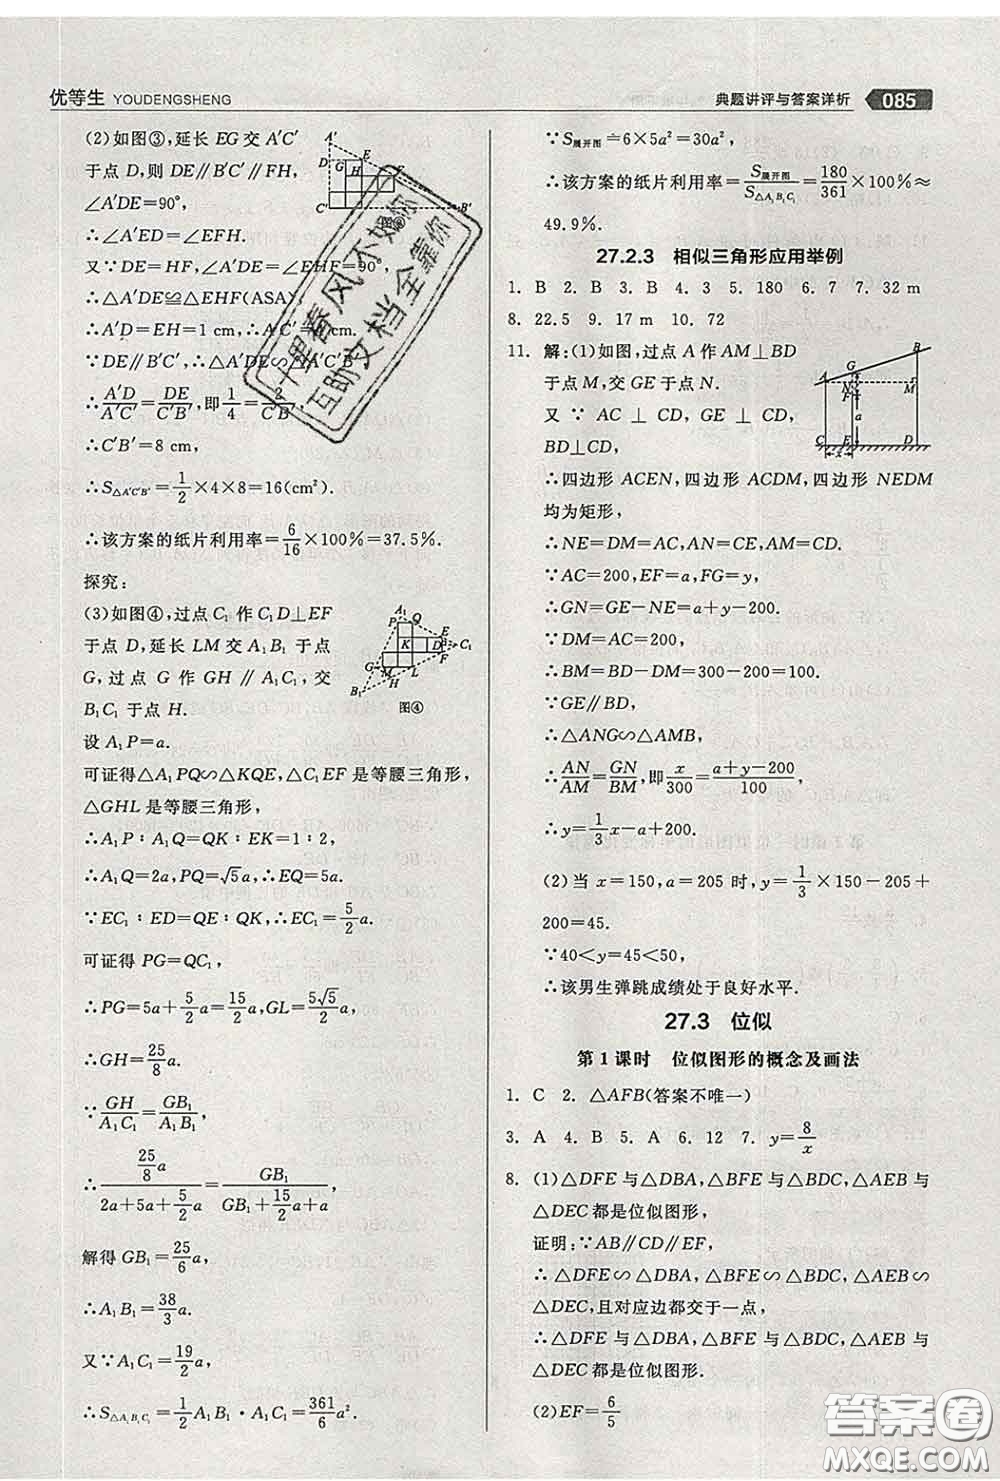 优等生 YOUDENGSHENG
典题讲评与答案详析 085
(2)如图③,延长 EG 交 A′C′
于点 D,则 DE∥B′C′∥FH,
∠A′DE=90°,
∴∠A′ED=∠EFH.
又∵DE=HF,∠A′DE=∠EHF=90°,
∴△A′DE≌△EHF(ASA),
∴A′D=EH=1 cm,∴A′C′=4 cm.
∵DE∥B′C′,
∴A′D/A′C′=DE/C′B′,即1/4=2/C′B′,
∴C′B′=8 cm,
∴S△A′C′B′=1/2×4×8=16(cm²).
∴该方案的纸片利用率=6/16×100%=37.5%.
探究:
(3)如图④,过点 C₁ 作 C₁D⊥EF
于点 D,延长 LM 交 A₁B₁ 于点
G,过点 G 作 GH∥A₁C₁,交
B₁C₁ 于点 H.
图④
设 A₁P=a.
可证得△A₁PQ∽△KQE,△C₁EF 是等腰三角形,
△GHL 是等腰三角形,
∴A₁P∶A₁Q=QK∶EK=1∶2,
∴A₁Q=2a,PQ=√5a,∴EQ=5a.
∵EC₁∶ED=QE∶QK,∴EC₁=5/2a.
可证得 PG=QC₁,
∴PG=5a+5/2a=15/2a,GL=5√5/2a,
∴GH=25/8a.
∵GH/A₁C₁=GB₁/A₁B₁,
∴(25/8a)/(2a+5a+5/2a)=GB₁/(GB₁+15/2a+a),
解得 GB₁=25/6a,
∴A₁B₁=38/3a.
又∵A₁C₁=19/2a,
∴S△A₁B₁C₁=1/2A₁B₁·A₁C₁=361/6a².
∵S展开图=6×5a²=30a²,
∴该方案的纸片利用率=S展开图/S△A₁B₁C₁=180/361×100%≈
49.9%.
27.2.3 相似三角形应用举例
1. B 2. B 3. B 4. 3 5. 180 6. 7 7. 32 m
8. 22.5 9. 17 m 10. 72
11. 解:(1)如图,过点 A 作 AM⊥BD
于点 M,交 GE 于点 N.
又∵AC⊥CD,GE⊥CD,
BD⊥CD,
∴四边形 ACEN,四边形 ACDM,四边形 NEDM
均为矩形,
∴NE=DM=AC,AN=CE,AM=CD.
∵AC=200,EF=a,FG=y,
∴GN=GE-NE=a+y-200.
∵DM=AC=200,
∴BM=BD-DM=300-200=100.
∵GE∥BD,
∴△ANG∽△AMB,
∴AN/AM=GN/BM,即x/300=(a+y-200)/100,
∴y=1/3x-a+200.
(2)当 x=150,a=205 时,y=1/3×150-205+
200=45.
∵40<y=45<50,
∴该男生弹跳成绩处于良好水平.
27.3 位似
第 1 课时 位似图形的概念及画法
1. C 2. △AFB(答案不唯一)
3. A 4. B 5. A 6. 12 7. y=8/x
8. (1)△DFE 与△DBA,△BFE 与△BDC,△AEB 与
△DEC 都是位似图形,
证明:∵AB∥CD∥EF,
∴△DFE∽△DBA,△BFE∽△BDC,△AEB∽
△DEC,且对应边都交于一点,
∴△DFE 与△DBA,△BFE 与△BDC,△AEB 与
△DEC 都是位似图形.
(2)EF=6/5
十里春风不如你
互助文档全靠你
答案圈
MXQE.COM